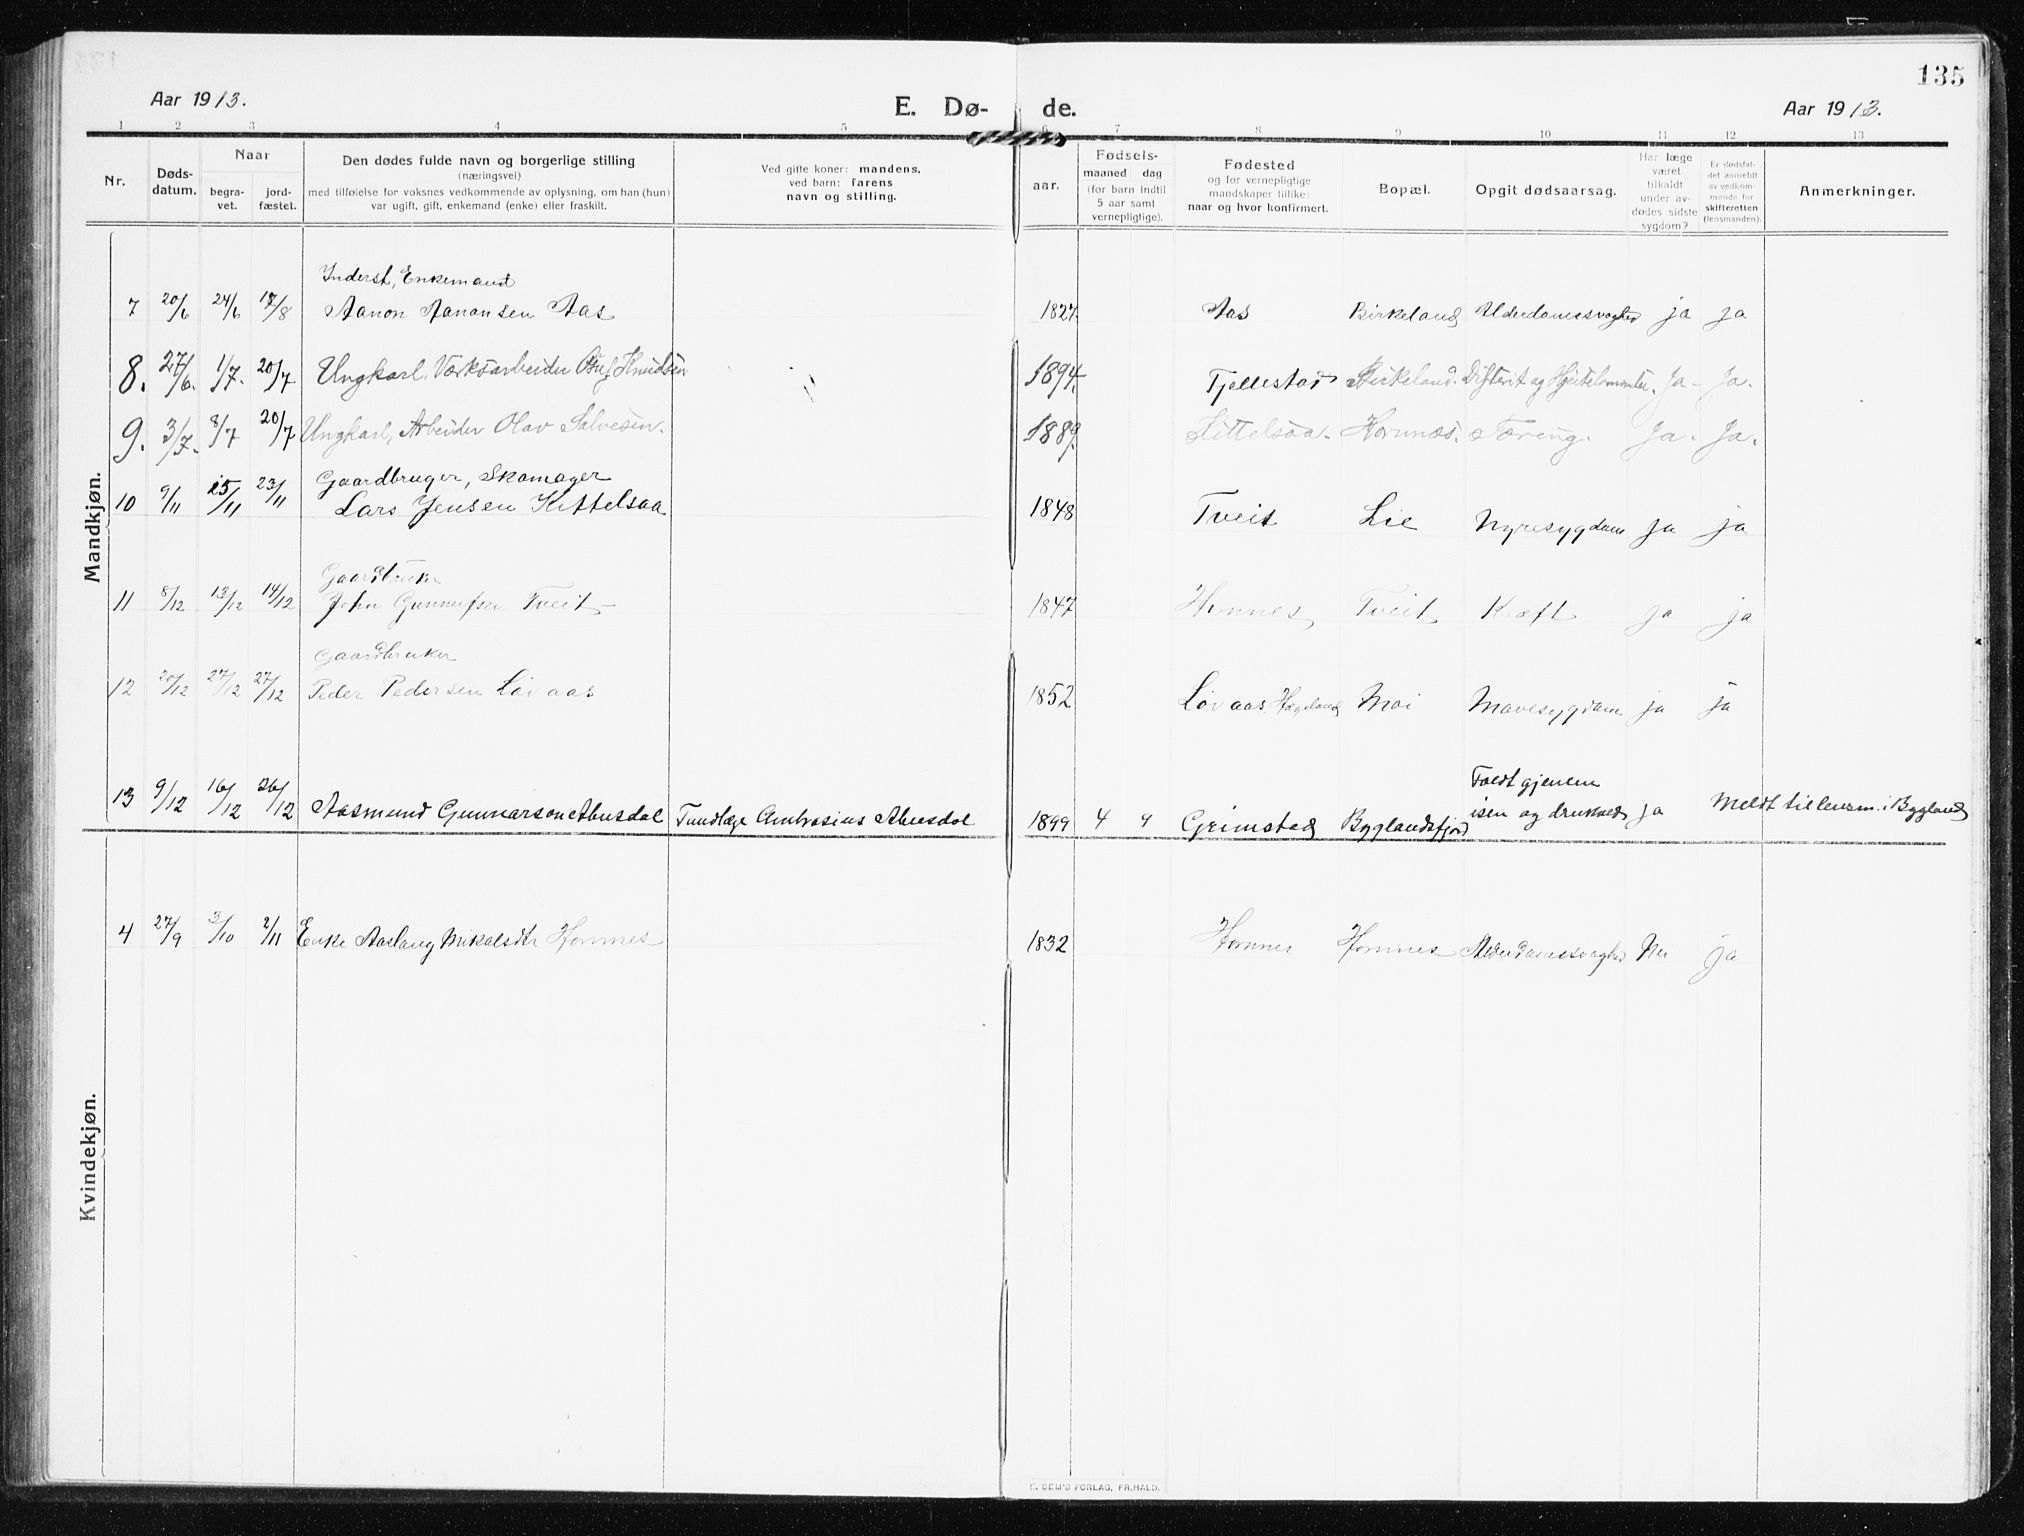 135
Aar 1913. E. Dø- de. Aar 1913.
1 2 3 4 5 6 7 8 9 10 11 12 13
Nr.
Døds-
datum.
Naar
begra-
vet.
jord-
fæstet.
Den dødes fulde navn og borgerlige stilling
(næringsvei)
med tilføielse for voksnes vedkommende av oplysning, om han (hun)
var ugift, gift, enkemand (enke) eller fraskilt.
Ved gifte koner: mandens,
ved barn: farens
navn og stilling.
aar.
Fødsels-
maaned dag
(for barn indtil
5 aar samt
vernepligtige).
Fødested
og for vernepligtige
mandskaper tillike:
naar og hvor konfirmert.
Bopæl.
Opgit dødsaarsag.
Har læge
været
tilkaldt
under av-
dødes sidste
sygdom?
Er dødsfal-
det anmeldt
av vedkom-
mende for
skifteretten
(lensmanden).
Anmerkninger.
Mandkjøn.
Inderst, Enkemand
7 20/6 24/6 17/8 Aanon Aanonsen Aas 1827. Aas Birkeland Alderdomssvaghed ja ja
8. 27/6. 1/7. 20/7 Ungkarl. Værksarbeider Knudsen 1894. Tjellestad Birkeland. Difterit og Ja- Ja.
9. 3/7. 8/7 20/7 Ungkarl, Arbeider Olav Salvesen. 1889. Hornnæs. Tæring. Ja. Ja.
Gaardbruger, Skomager
10 9/11 15/11 23/11 Lars Jensen Kittelsaa 1848 Tveit Lie Nyresygdom ja ja
Gaardbruker
11 8/12 13/12 14/12 John Gunnufsen Tveit 1847 Hornnes Tveit Kræft ja ja
Gaardbruker
12 20/12 27/12 27/12 Peder Pedersen Løvaas 1852 Løvaas Hægeland Moi Mavesygdom ja ja
Faldt gjenem
13 9/12 16/12 26/12 Aasmund Gunnarson Abusdal Tandlæge Ambrosius Abusdal 1899 4 4 Grimstad Byglandsfjord isen og druknede ja Meldt til lensm. i Bygland
Kvindekjøn.
4 27/9 3/10 2/11 Enke Aaslaug Mikalsdtr Hornnes 1832 Hornnes Hornnes Alderdomssvaghed Nei ja
E. SEM'S FORLAG, FR.HALD.